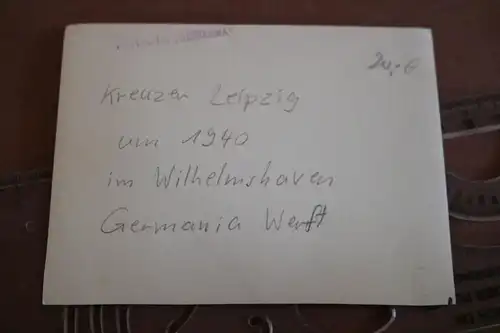 20,- €
Kreuzer Leipzig
um 1940
im Wilhelmshaven
Germania Werft